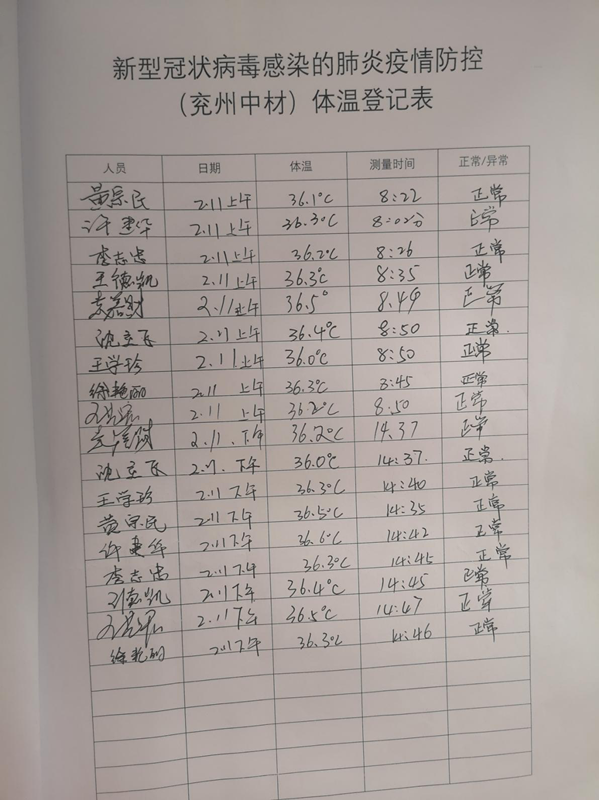 新型冠状病毒感染的肺炎疫情防控
（兖州中材）体温登记表
人员 日期 体温 测量时间 正常/异常
黄宗民 2.11上午 36.1℃ 8:22 正常
许建华 2.11上午 36.3℃ 8:02分 正常
李志忠 2.11上午 36.2℃ 8:26 正常
王德凯 2.11上午 36.3℃ 8:35 正常
2.11上午 36.5° 8.49 正常
沈立飞 2.11上午 36.4℃ 8:50 正常.
王学珍 2.11上午 36.0℃ 8:50 正常
徐艳丽 2.11 上午 36.3℃ 8:45 正常
2.11 上午 36.2℃ 8:50 正常
2.11.下午 36.2℃ 14.37 正常
沈立飞 2.11.下午 36.0℃ 14:37. 正常.
王学珍 2.11下午 36.3℃ 14:40 正常
黄宗民 2.11下午 36.5℃ 14:35 正常
许建华 2.11下午 36.6℃ 14:42 正常
李志忠 2.11下午 36.3℃ 14:45 正常
德凯 2.11下午 36.4℃ 14:45 正常
2.11下午 36.5℃ 14:47 正常
徐艳丽 2.11下午 36.3℃ 14:46 正常